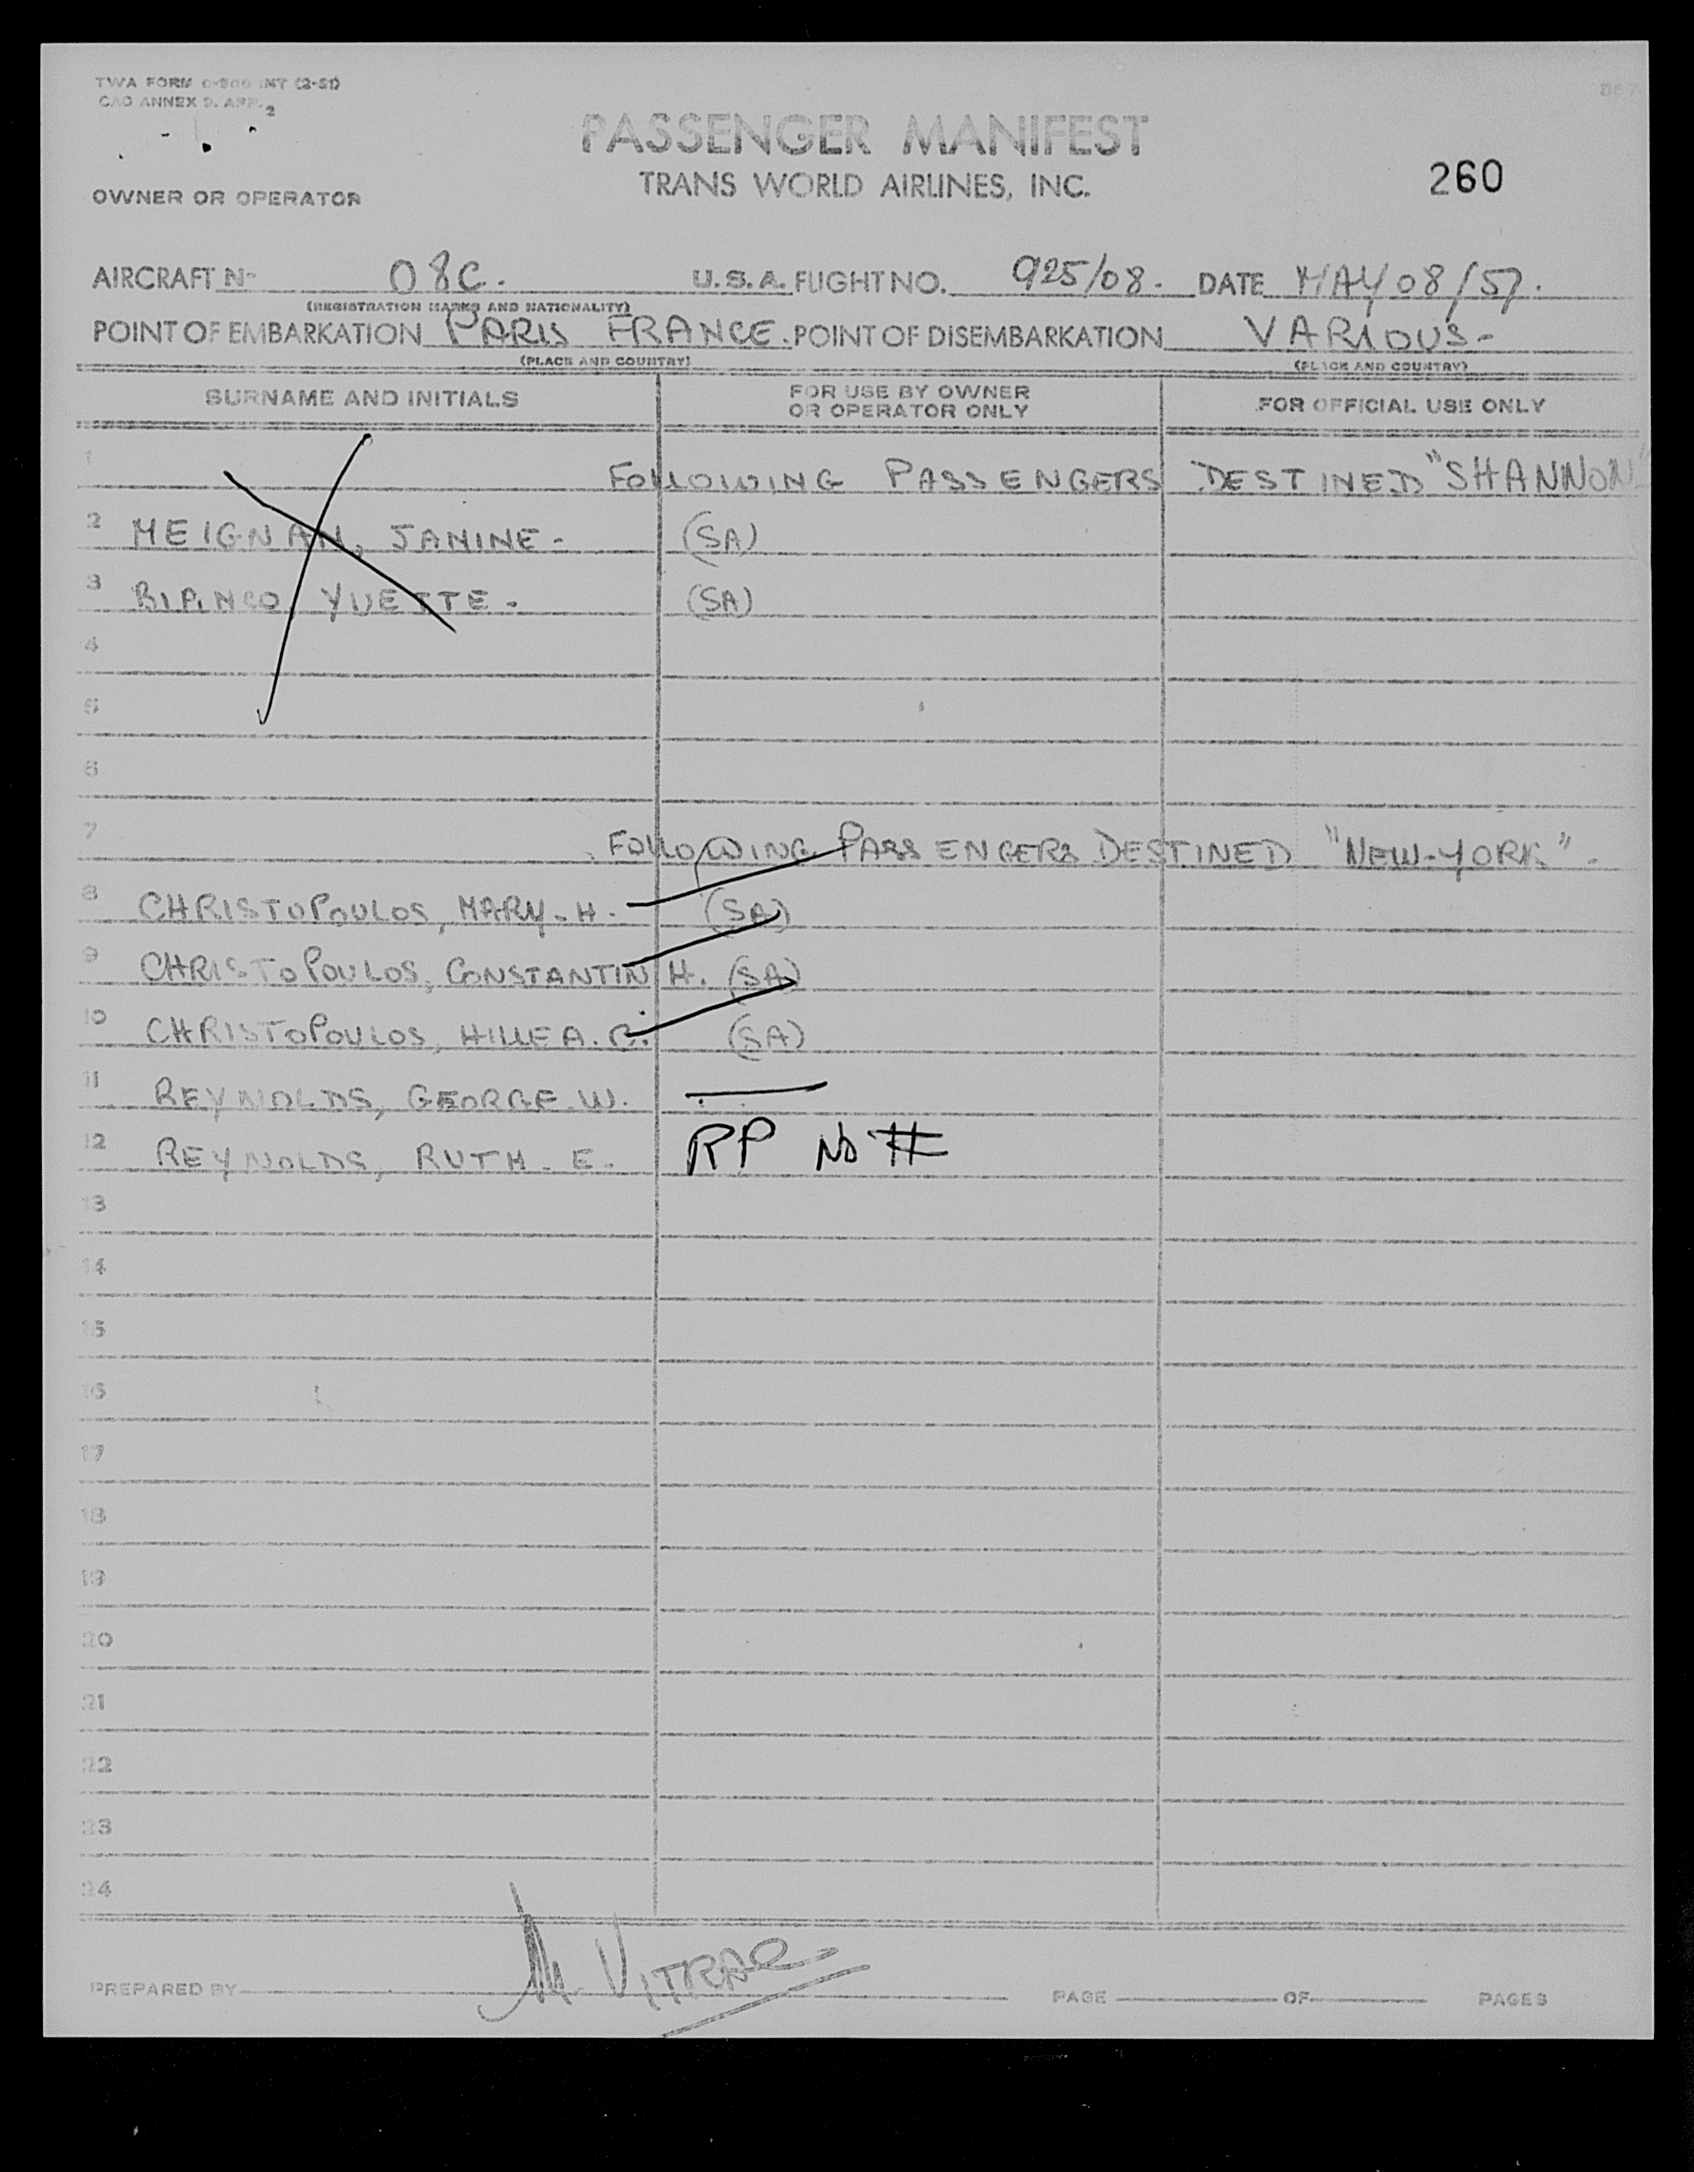 TWA FORM 0-800 INT (2-51)
ICAO ANNEX 9. APP. 2
PASSENGER MANIFEST
TRANS WORLD AIRLINES, INC.
260
OWNER OR OPERATOR
AIRCRAFT No 08C. U.S.A. FLIGHT NO. 925/08. DATE MAY 08/57.
(REGISTRATION MARKS AND NATIONALITY)
POINT OF EMBARKATION PARIS FRANCE. POINT OF DISEMBARKATION VARIOUS-
(PLACE AND COUNTRY) (PLACE AND COUNTRY)
SURNAME AND INITIALS FOR USE BY OWNER OR OPERATOR ONLY FOR OFFICIAL USE ONLY
1 FOLLOWING PASSENGERS DESTINED "SHANNON"
2 MEIGNAN, JANINE- (SA)
3 BIANCO, YVETTE- (SA)
4
5
6
7 FOLLOWING PASSENGERS DESTINED "NEW-YORK".
8 CHRISTOPOULOS, MARY-H. (SA)
9 CHRISTOPOULOS, CONSTANTIN H. (SA)
10 CHRISTOPOULOS, (SA)
11 REYNOLDS, GEORGE W.
12 REYNOLDS, RUTH-E. RP No #
13
14
15
16
17
18
19
20
21
22
23
24
PREPARED BY M VITRAC PAGE OF PAGES